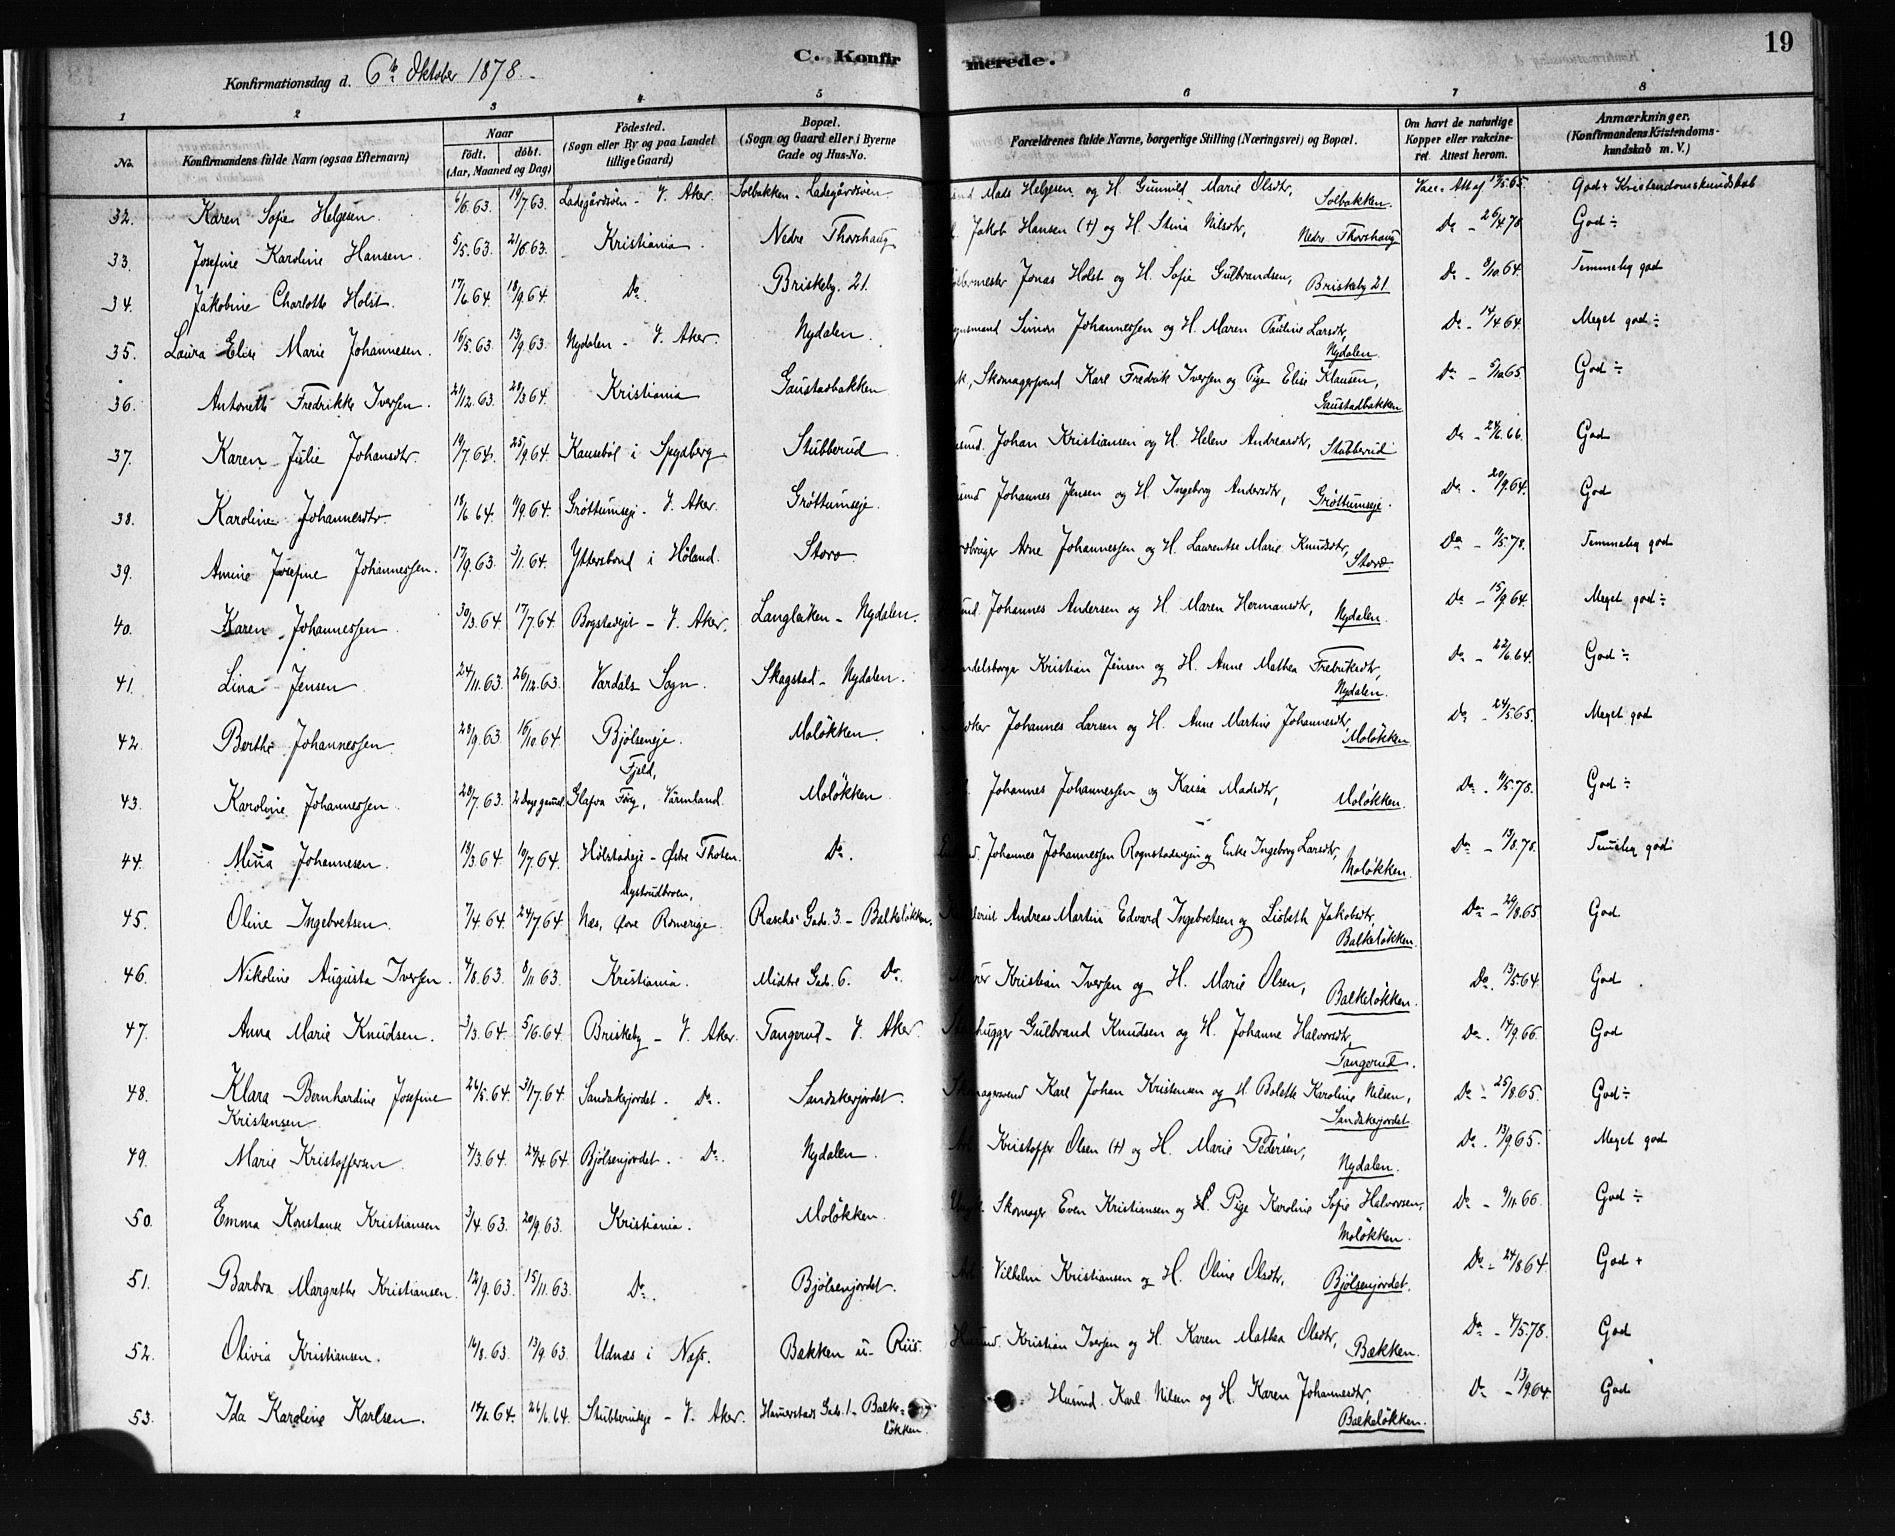 C. Konfirmerede.
19
Konfirmationsdag d. 6te Oktober 1878.
1 2 3 4 5 6 7 8
No. Konfirmandens fulde Navn (ogsaa Efternavn) Naar født. døbt. (Aar, Maaned og Dag) Fødested. (Sogn eller By og paa Landet tillige Gaard) Bopæl. (Sogn og Gaard eller i Byerne Gade og Hus-No. Forældrenes fulde Navne, borgerlige Stilling (Næringsvei) og Bopæl. Om havt de naturlige Kopper eller vakcineret. Attest herom. Anmærkninger. (Konfirmandens Kristendomskundskab m. V.)
32. Karen Sofie Helgesen 6/6.63. 19/7.63. Ladegårdsøen - V. Aker. Solbakken - Ladegårdsøen Mads Helgesen og H. Gunnild Marie Olsdtr, Solbakken. God + Kristendomskundskab
33. Josefine Karoline Hansen. 5/5.63. 21/6.63. Kristiania. Nedre Thorshaug Jakob Hansen (+) og H. Stina Nilsdtr, Nedre Thorshaug Do - 26/4.78 God ÷
34. Jakobine Charlotte Holst. 17/6.64. 18/9.64. Do. Briskeby. 21. Jonas Holst og H. Sofie Gulbrandsen, Briskeby 21 Do - 8/10.64 Temmelig god
35. Laura Elise Marie Johannesen. 16/5.63. 13/9.63. Nydalen - V. Aker. Nydalen Simon Johannessen og H. Maren Pauline Larsdtr, Nydalen. Do - 14/4.64 Meget god ÷
36. Antonette Fredrikke Iversen. 21/12.63. 28/3.64. Kristiania Gaustadbakken Skomagersvend Karl Fredrik Iversen og Pige Elise Klausen, Gaustadbakken Do - 5/10.65 God ÷
37. Karen Julie Johansdtr. 19/7.64. 25/9.64. Kausebøl i Spydberg Stubberud Johan Kristiansen og H. Helene Andreasdtr, Stubberud Do - 24/6.66. God
38. Karoline Johannesdtr. 18/6.64. 11/9.64. Grøttumseje - V. Aker. Grøttumseje. Johannes Jensen og H. Ingeborg Andersdtr, Grøttumseje. Do - 20/9.64. God
39. Amine Josefine Johannessen. 17/9.63. 3/1.64. Yttersbond i Høland. Storo Arne Johannessen og H. Laurentse Marie Knudsdtr, Storo. Do - 11/5.78. Temmelig god
40. Karen Johannessen 30/3.64. 17/7.64. Bogstadeje - V. Aker. Langløkken - Nydalen. Johannes Andersen og H. Maren Hermansdtr, Nydalen. Do - 15/9.64. Meget god ÷
41. Lina Jensen 24/11.63. 26/12.63. Vardals Sogn. Skagstad - Nydalen. Kristian Jensen og H. Anne Mathea Fredriksdtr, Nydalen. Do - 22/6.64. God ÷
42. Berthe Johannessen 28/9.63 16/10.64. Bjølseneje. Moløkken. Johannes Larsen og H. Anne Martine Johannesdtr, Moløkken. Do - 24/5.65. Meget god
43. Karoline Johannessen. 28/7.63. 2 Dage gammel Fjeld, Glafva Førg, Värmland. Moløkken. Johannes Johannessen og Kaisa Madsdtr, Moløkken. Do - 11/5.78. God ÷
44. Mina Johannesen. 18/3.64 10/7.64. Hølstadeje - Østre Thoten. Do. Johannes Johannessen Rognstadvejen og Enke Ingeborg Larsdtr, Moløkken. Do - 13/8.78. Temmelig god
45. Oline Ingebretsen. 7/4.64. 24/7.64 Dystrudbroen, Næs, Øvre Romerige. Rasch's Gade 3. - Balkeløkken. Andreas Martin Edvard Ingebretsen og Lisbeth Jakobsdtr, Balkeløkken. Do - 29/8.65 God
46. Nikoline Augusta Iversen. 4/8.63. 8/11.63 Kristiania. Midtre Gade 6. Do. Kristian Iversen og H. Marie Olsen, Balkeløkken. Do. 13/5.64 God
47. Anna Marie Knudsen. 3/3.64. 5/6.64. Briskeby - V. Aker. Tangerud - V. Aker Stenhugger Gulbrand Knudsen og H. Johanne Halvorsdtr, Tangerud. Do. 14/9.66. God
48. Klara Bernhardine Josefine Kristensen. 26/5.64. 31/7.64. Sandakerjordet. Do. Sandakerjordet. Skomagersvend Karl Johan Kristensen og H. Bolette Karoline Nilsen, Sandakerjordet Do - 25/8.65. God ÷
49. Marie Kristoffersen. 4/3.64. 24/4.64. Bjølsenjordet. Do. Nydalen. Arb. Kristoffer Olsen (+) og H. Marie Pedersen, Nydalen. Do. 13/9.65. Meget god
50. Emma Konstanse Kristiansen 3/4.63. 20/9.63. Kristiania. Moløkken. Ungk. Skomager Even Kristiansen og Pige Karoline Sofie Halvorsen, Moløkken. Do - 9/11.66. God ÷
51. Barbra Margrethe Kristiansen. 12/9.63. 15/11.63. Do. Bjølsenjordet. Arb. Vilhelm Kristiansen og H. Oline Olsdtr, Bjølsenjordet. Do - 24/8.64. God +
52. Olivia Kristiansen. 16/8.63. 13/9.63. Udnæs i Næss. Bakken u. Riis. Husmd. Kristian Iversen og H. Karen Mathea Olsdtr, Bakken. Do - 4/5.78. God
53. Ida Karoline Karlsen. 26/6.64. Stubberudeje - V. Aker. Hammerstads Gade 1 - Balkeløkken. Husmd. Karl Nilsen og H. Karen Johannesdtr, Balkeløkken. Do - 13/9.64. God